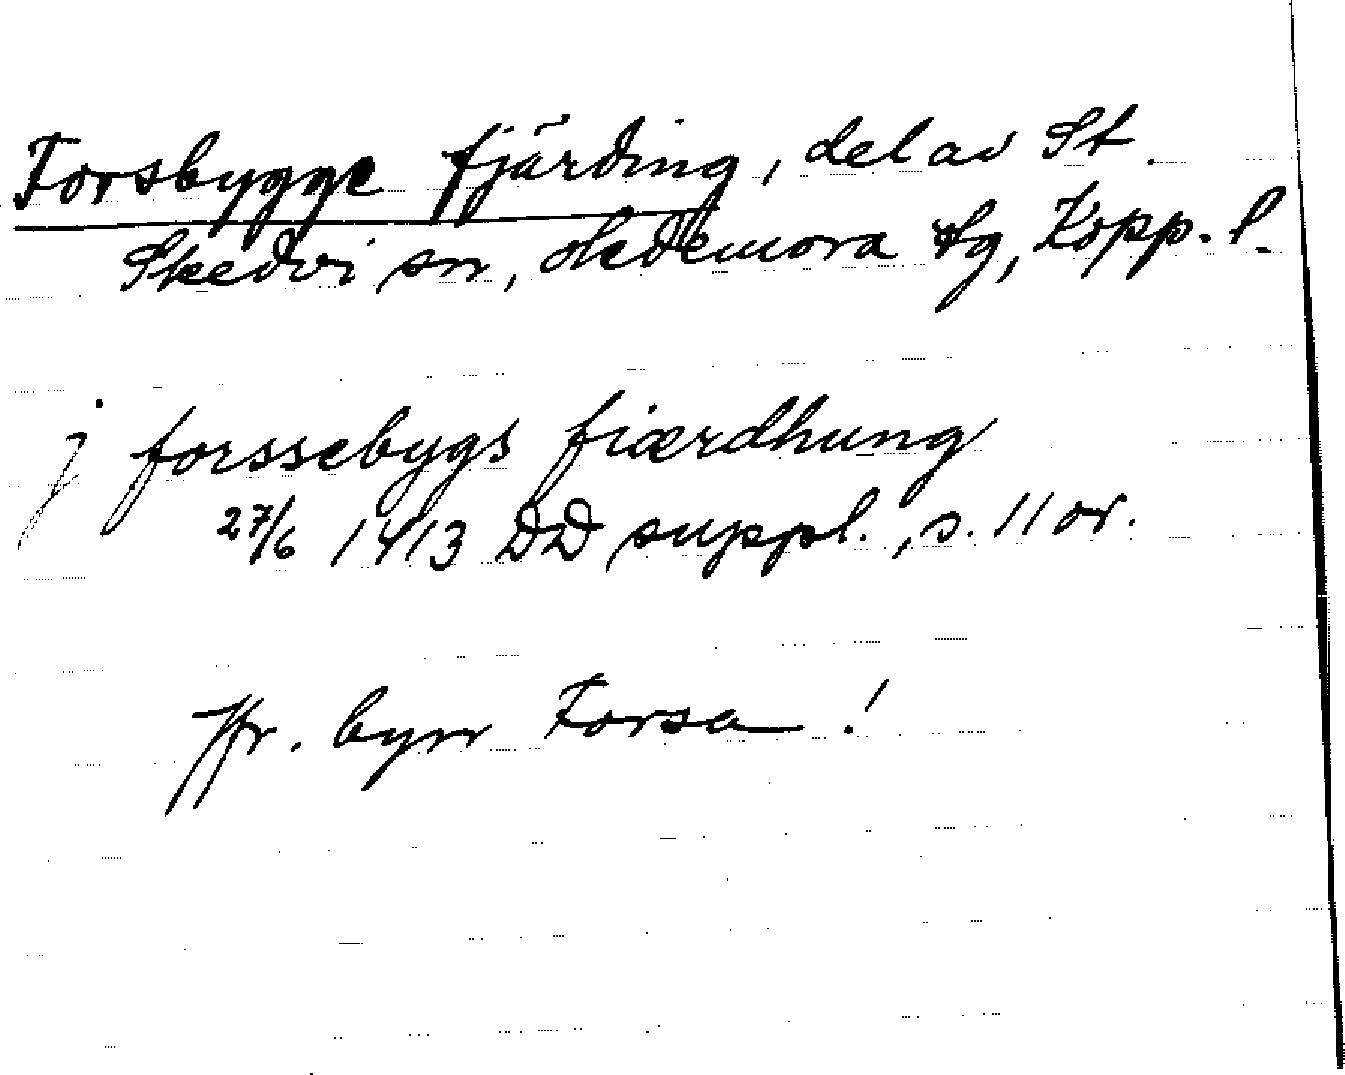 Forsbygge fjärding, del av St.
Skedvi sn, Hedemora tg, Kopp. l.
j forssebygs fiærdhung
27/6 1413 DD suppl., s. 11 or.
Jfr. byn Forsa !